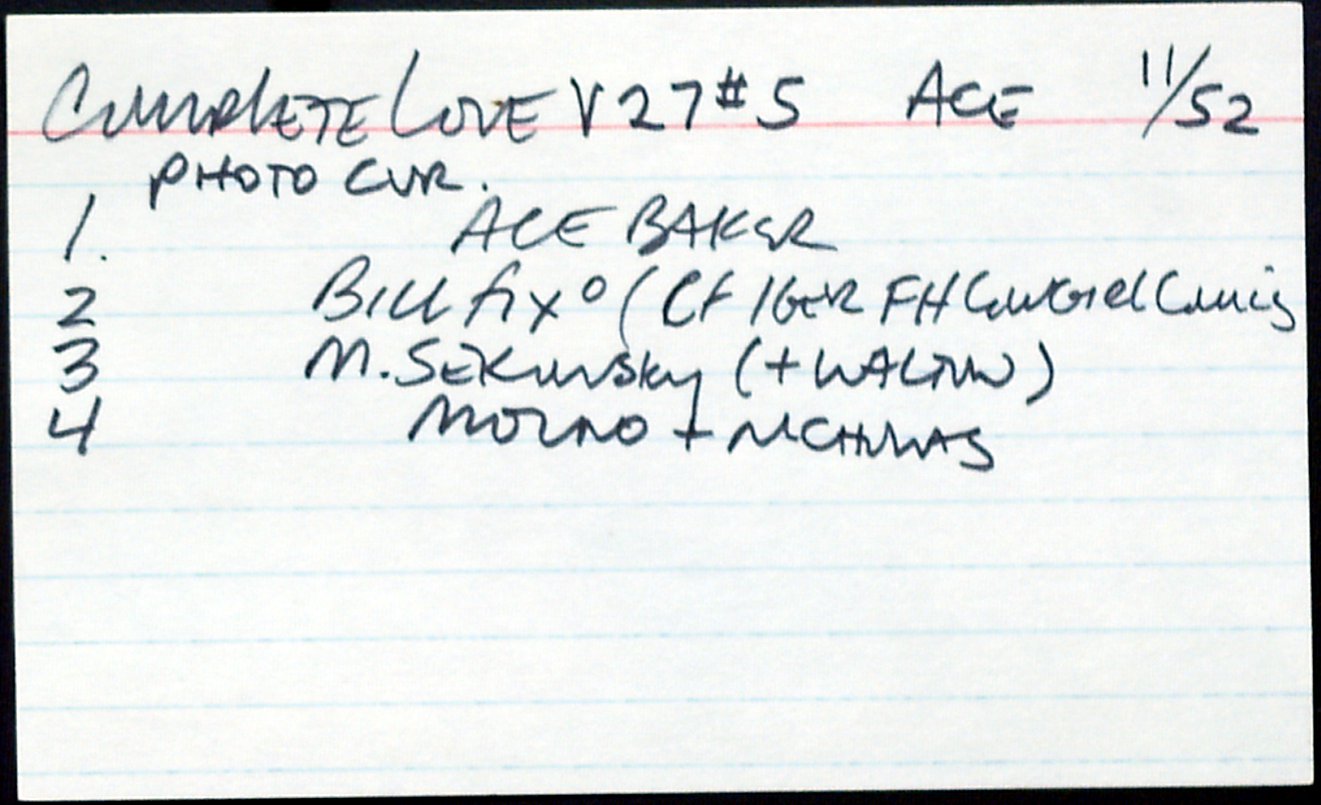 COMPLETE LOVE V27 #5 ACE 11/52
PHOTO CVR.
1. ACE BAKER
2 BILL fix° (Cf IGER FH
3 M. SEKOWSKY (+ WALTON)
4 + NICHOLAS